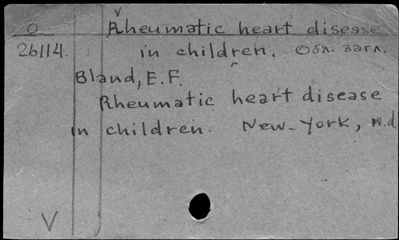 O Rheumatic heart disease
26114. in children. Обл. загл.
Bland, E.F.
Rheumatic heart disease
in children. New-York, n.d
V